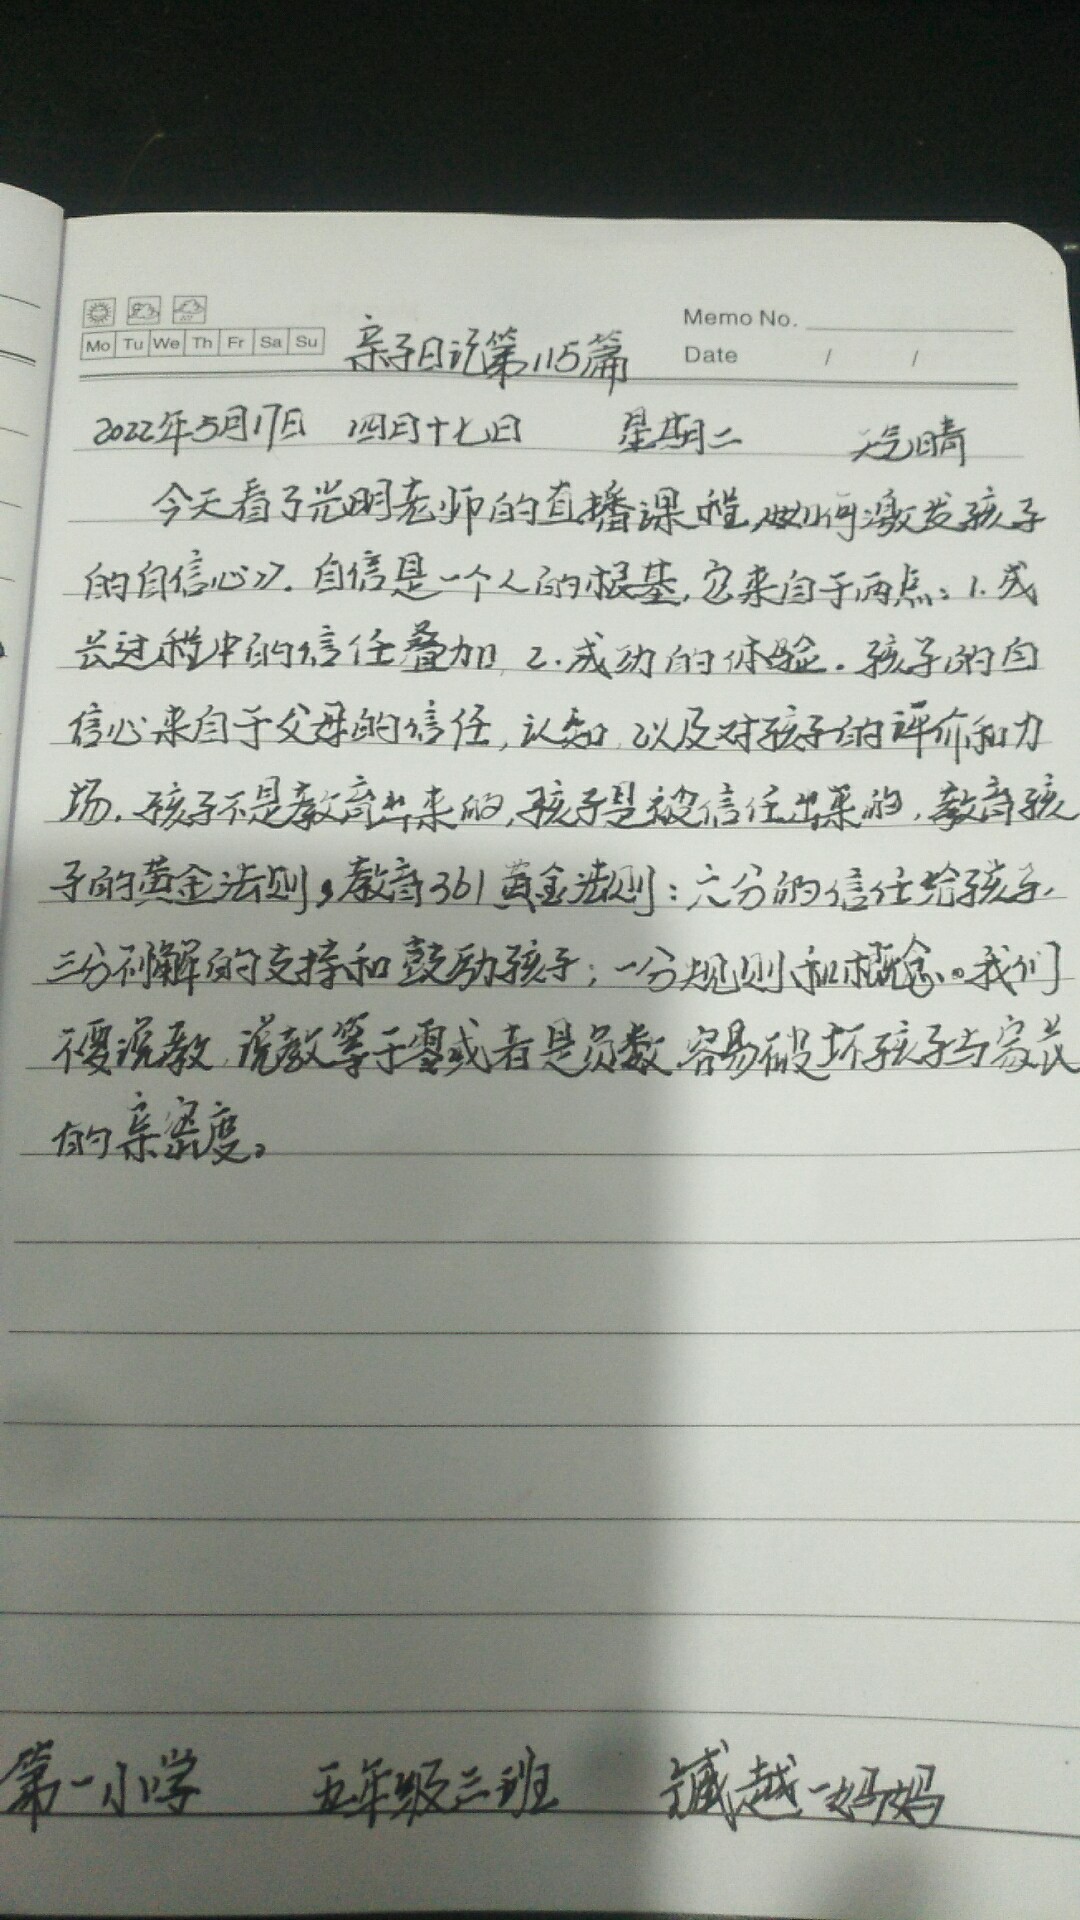 Memo No.
Mo Tu We Th Fr Sa Su
Date / /
亲子日记第115篇
2022年5月17日 四月十七日 星期二 天气晴
今天看了光明老师的直播课程《如何激发孩子
的自信心》。自信是一个人的根基,它来自于两点:1.成
长过程中的信任叠加,2.成功的体验.孩子的自
信心来自于父母的信任,认知,以及对孩子的评价和力
场.孩子不是教育出来的,孩子是被信任出来的,教育孩
子的黄金法则,教育361黄金法则:六分的信任给孩子,
三分理解的支持和鼓励孩子;一分规则和概念。我们
不要说教,说教等于零或者是负数,容易破坏孩子与家长
的亲密度。
第一小学 五年级三班 臧越一妈妈